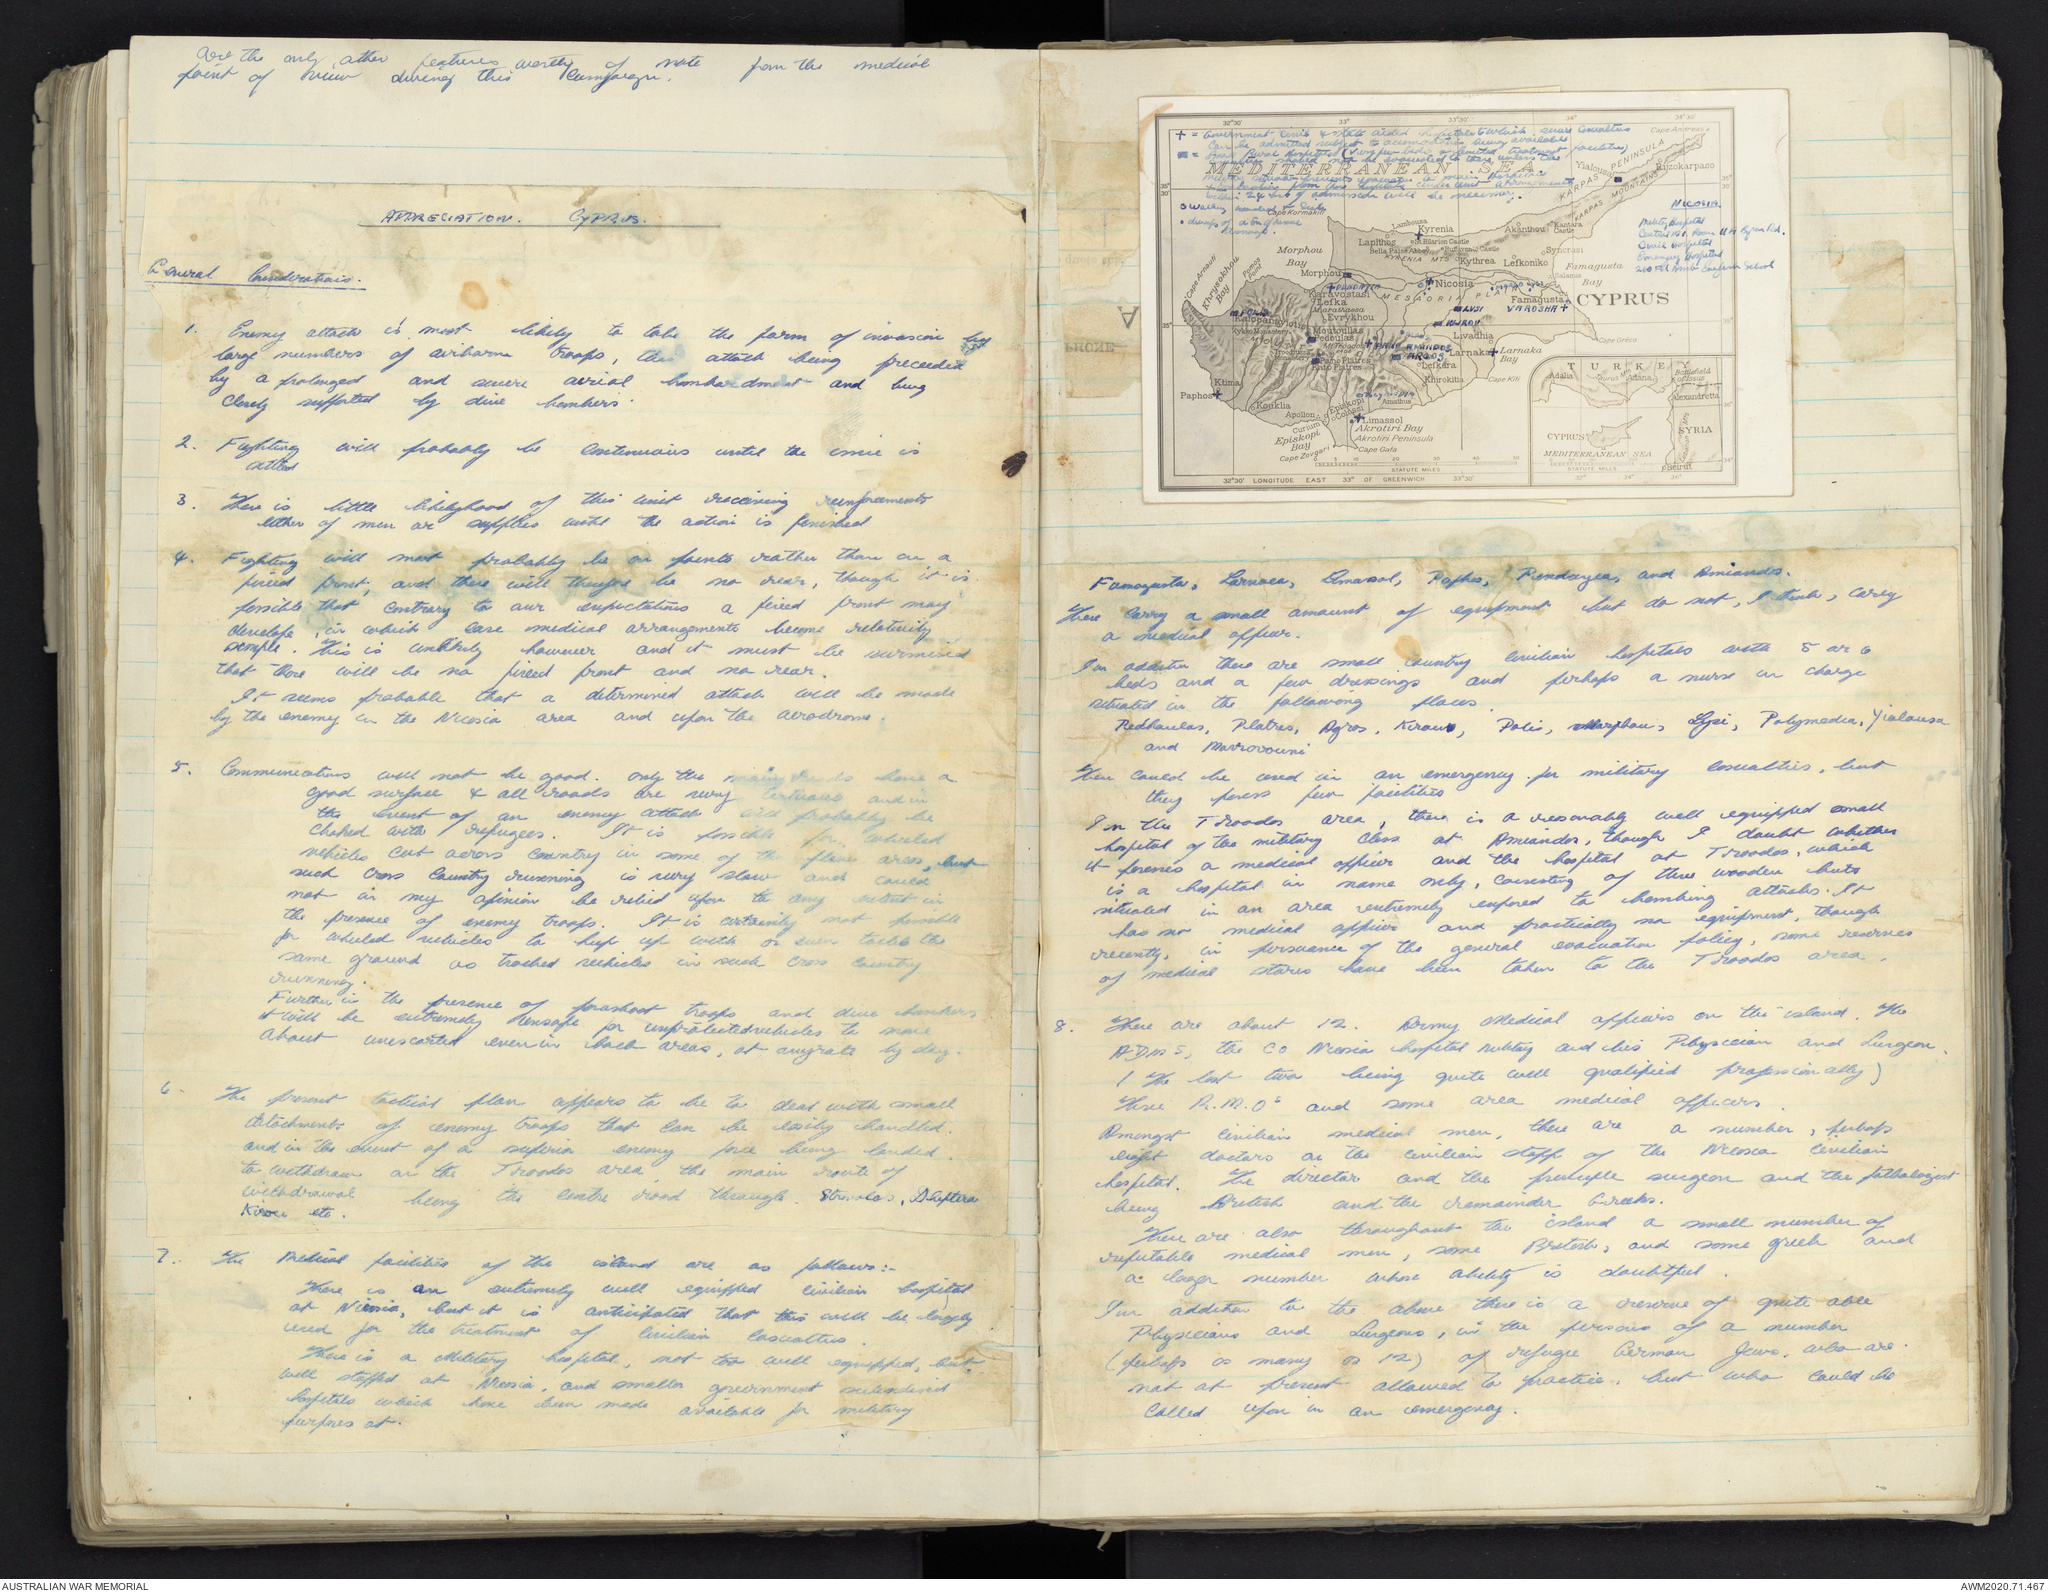 are the only other features worthy of note from the medical
point of view during this campaign.
APPRECIATION. CYPRUS.
General Considerations.
1. Enemy attack is most likely to take the form of invasion by
large numbers of airborne troops, the attack being preceeded
by a prolonged and severe aerial bombardment and being
closely supported by dive bombers.
2. Fighting will probably be continuous until the issue is
settled
3. There is little likelyhood of this unit receiving reinforcements
either of men or supplies until the action is finished
4. Fighting will most probably be on points rather than on a
fixed front, and there will therefore be no rear, though it is
possible that contrary to our expectations a fixed front may
develope, in which case medical arrangements become relatively
simple. This is unlikely however and it must be surmised
that there will be no fixed front and no rear.
It seems probable that a determined attack will be made
by the enemy in the Nicosia area and upon the aerodrome.
5. Communications will not be good. Only the main roads have a
good surface & all roads are very tortuous and in
the event of an enemy attack will probably be
choked with refugees. It is possible for wheeled
vehicles cut across country in some of the plane areas, but
such cross country running is very slow and could
not in my opinion be relied upon to any extent in
the presence of enemy troops. It is certainly not possible
for wheeled vehicles to keep up with or even tackle the
same ground as tracked vehicles in such cross country
running.
Further in the presence of parashoot troops and dive bombers
it will be extremely unsafe for unprotected vehicles to move
about unescorted even in back areas, at anyrate by day.
6. The present tactical plan appears to be to deal with small
detachments of enemy troops that can be easily handled.
and in the event of a superior enemy force being landed.
to withdraw on the Troodos area, the main route of
withdrawal being the centre road through Strovolos, Deftera
Kirou etc.
7. The Medical facilities of the island are as follows:-
There is an extremely well equipped civilian hospital
at Nicosia, but it is anticipated that this will be largely
used for the treatment of civilian casualties.
There is a Military hospital, not too well equipped, but
well staffed at Nicosia, and smaller government subsidised
hospitals which have been made available for military
purposes at.
+ = Government Civil & State aided hospitals to which severe casualties
can be admitted subject to accomodation being available
Rural Hospitals (very few beds & limited treatment facilities)
MEDITERRANEAN SEA
32°30' 33° 33°30' 34° 34°30'
Cape Andreas
KARPAS PENINSULA
KARPAS MOUNTAINS
Yialousa
Rizokarpaso
Cape Kormakiti
NICOSIA
Military Hospital
Civil Hospital
Emergency Hospital
Lambousa
Kyrenia
Lapithos
St Hilarion Castle
Bella Pais Abbey
Buffavento Castle
Akanthou
Kantara Castle
Syncrasi
KYRENIA MTS
Kythrea
Lefkoniko
Salamis
Famagusta Bay
Cape Arnauti
Khrysokhou Bay
Pomos Point
Morphou Bay
Morphou
Nicosia
Famagusta
CYPRUS
VAROSHA
MESAORIA PLAIN
Karavostasi
Lefka
Marathasa
Evrykhou
Kalopanayiotis
Kykko Monastery
Moutoullas
Pedoulas
Mt Troodos
LYSI
Livadhia
Larnaka
Larnaka Bay
Cape Greco
AGROS
Pano Platres
Kato Platres
Lefkara
Khirokitia
Cape Kiti
Ktima
Paphos
Kouklia
Apollon
Curium
Episkopi
Colossi
Amathus
Limassol
Akrotiri Bay
Akrotiri Peninsula
Episkopi Bay
Cape Zevgari
Cape Gata
STATUTE MILES
32°30' LONGITUDE EAST 33° OF GREENWICH 33°30'
TURKEY
Adalia
Taurus Mts
Adana
Battlefield of Issus
Alexandretta
SYRIA
CYPRUS
MEDITERRANEAN SEA
STATUTE MILES
Beirut
32° 34° 36°
Famagusta, Larnaca, Limassol, Paphos, Pendayea, and Amiandos.
These carry a small amount of equipment but do not, I think, carry
a medical officer.
In addition there are small country civilian hospitals with 5 or 6
beds and a few dressings and perhaps a nurse in charge
situated in the following places.
Pedhoulas, Platres, Agros, Kirou, Polis, Morphou, Lysi, Polymedia, Yialousa
and Mavrovouni
These could be used in an emergency for military casualties, but
they posess few facilities
In the Troodos area, there is a resonably well equipped small
hospital of the military class at Amiandos, though I doubt whether
it posesses a medical officer and the hospital at Troodos, which
is a hospital in name only, consisting of three wooden huts
situated in an area extremely exposed to bombing attacks. It
has no medical officer and practically no equipment, though
recently, in persuance of the general evacuation policy, some reserves
of medical stores have been taken to the Troodos area.
8. There are about 12. Army Medical officers on the island. The
ADMS, the CO Nicosia hospital military and his Physician and Surgeon.
(The last two being quite well qualified professionally)
Three R.M.Os and some area medical officers.
Amongst civilian medical men, there are a number, perhaps
eight doctors on the civilian staff of the Nicosia civilian
hospital. The director and the principle surgeon and the pathologist
being British and the remainder Greeks.
There are also throughout the island a small number of
reputable medical men, some British, and some greek and
a larger number whose ability is doubtful.
In addition to the above there is a reserve of quite able
Physicians and Surgeons, in the persons of a number
(perhaps as many as 12) of refugee German Jews, who are
not at present allowed to practice, but who could be
called upon in an emergency.
AUSTRALIAN WAR MEMORIAL
AWM2020.71.467